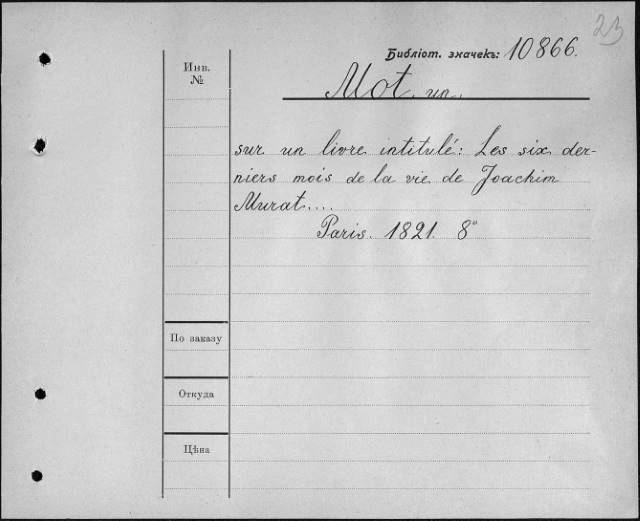 23
Библіот. значекъ: 10866.
Инв.
№
Mot un
sur un livre intitulé: Les six der-
niers mois de la vie de Joachim
Murat....
Paris. 1821. 8°
По заказу
Откуда
Цѣна